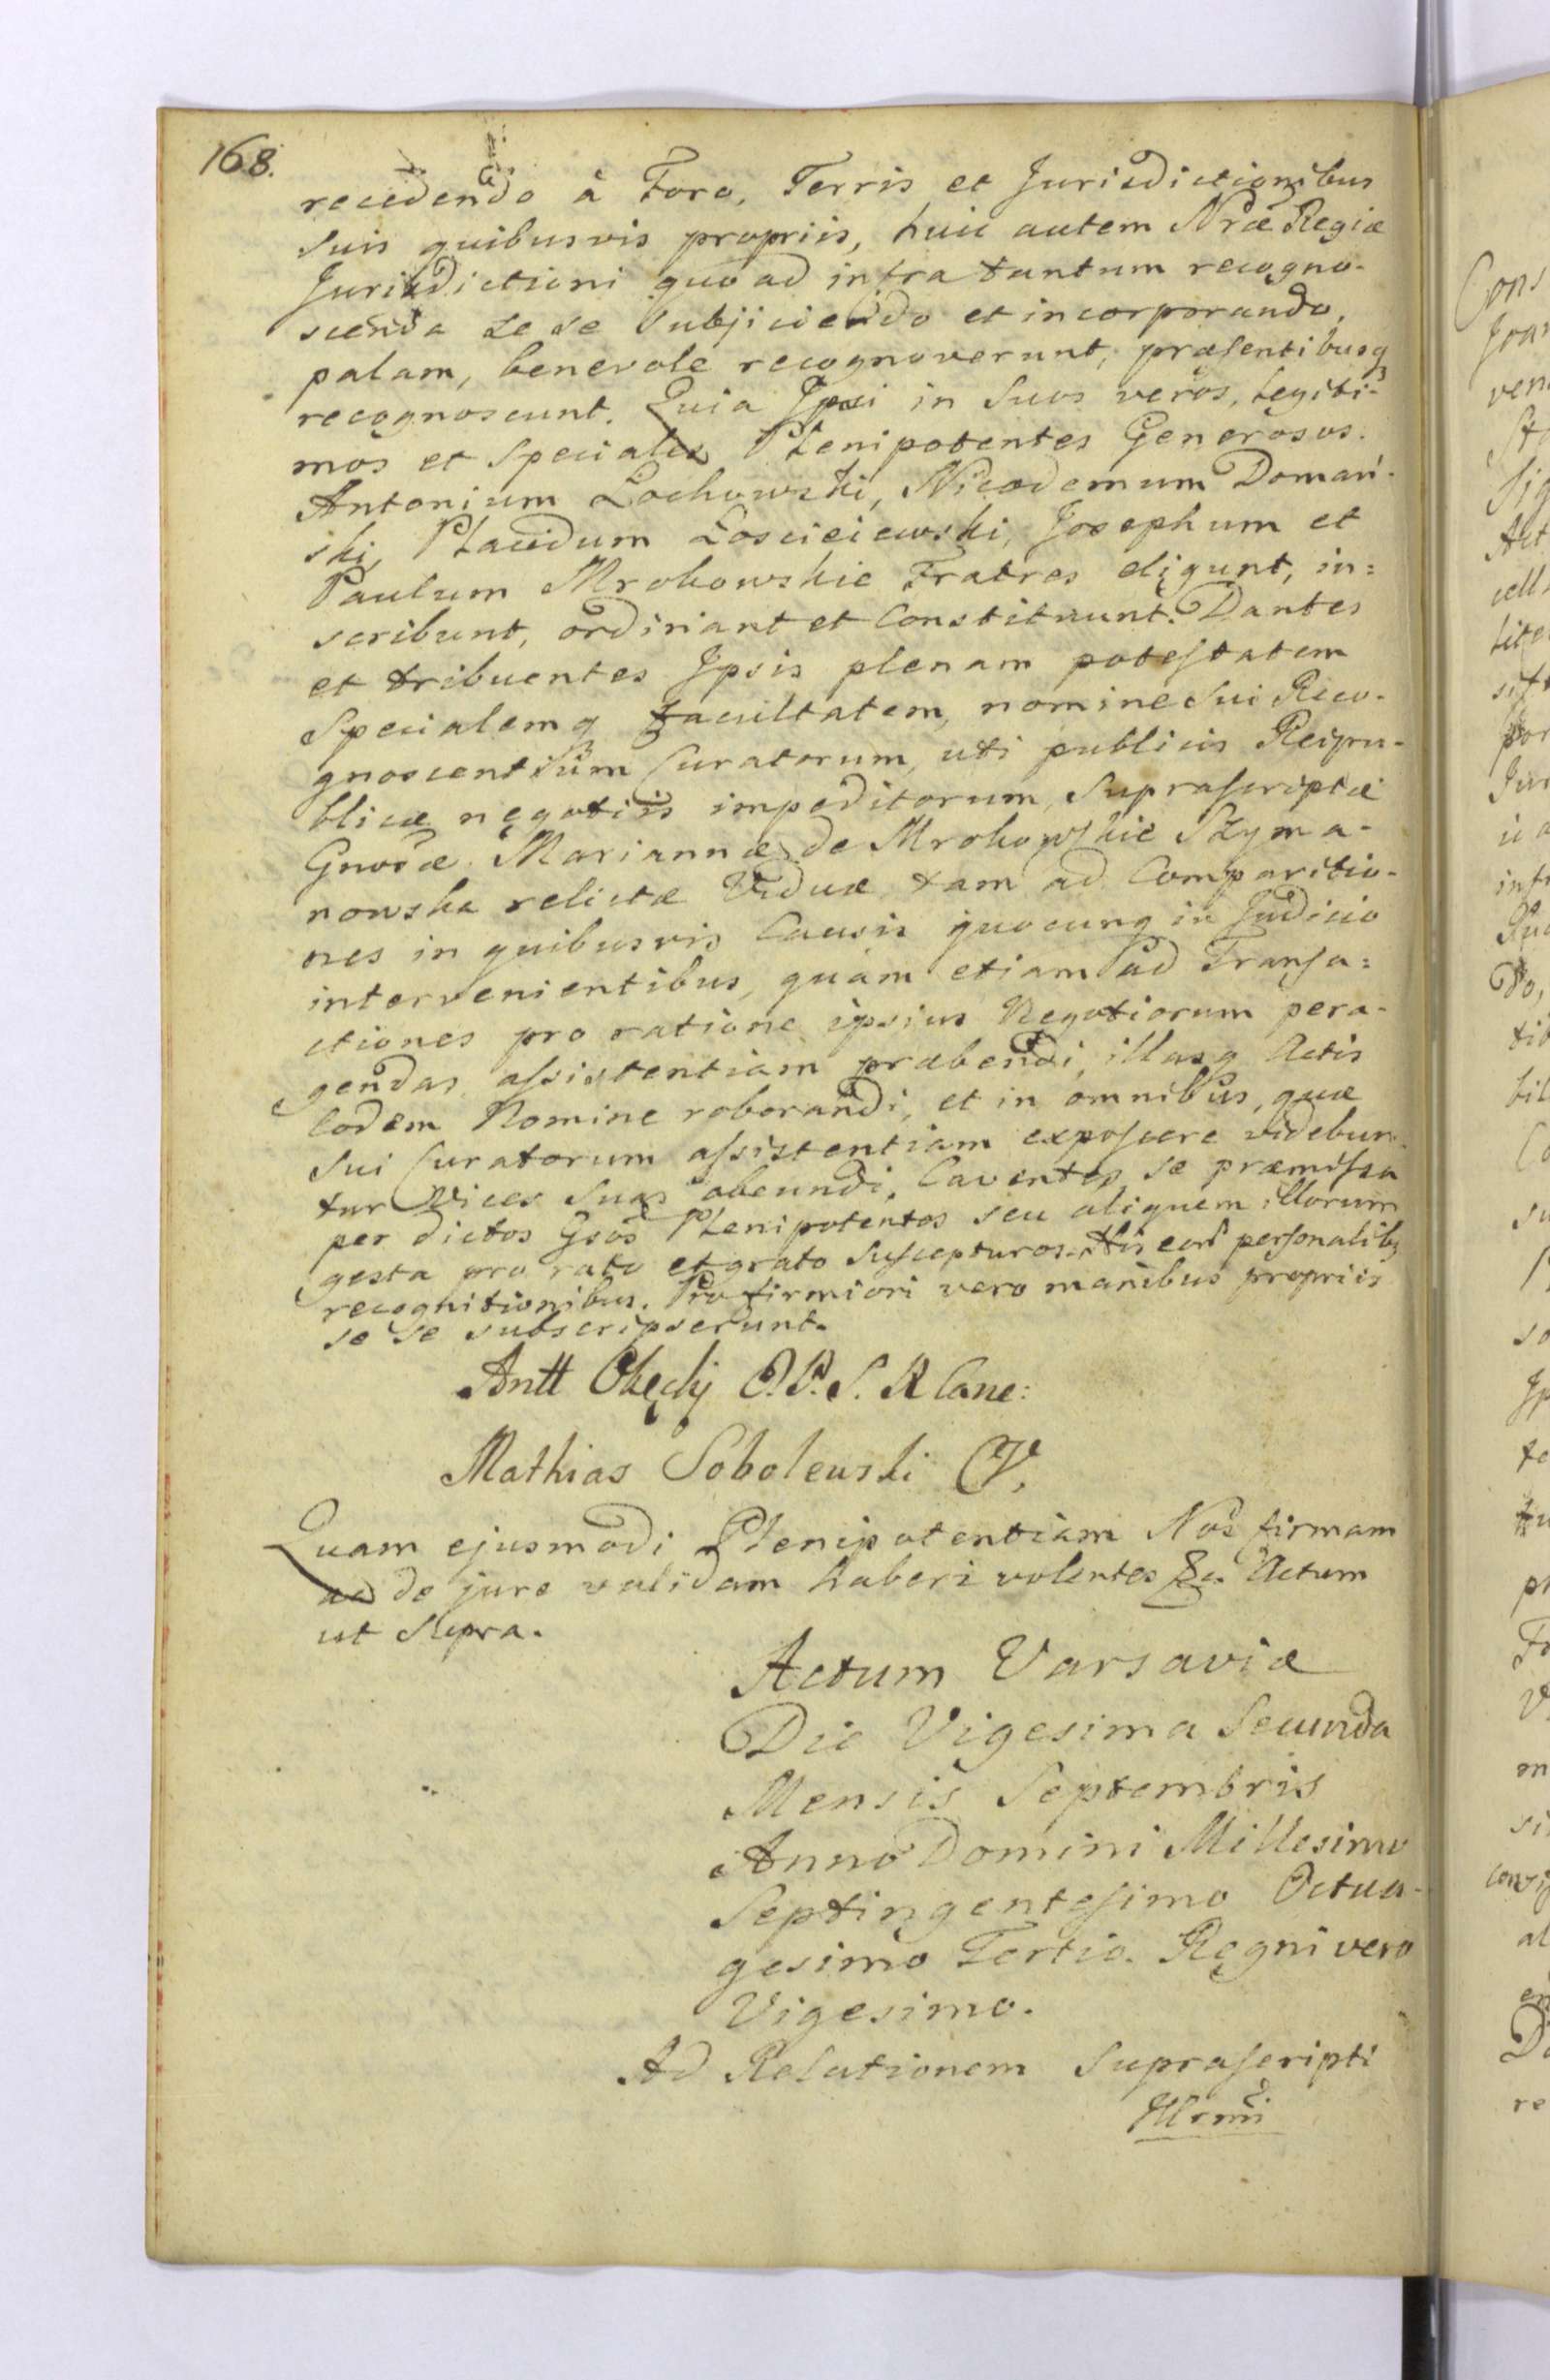 168.
recedendo à Foro, Terris et Jurisdictionibus
suis quibusvis propriis, huic autem Nræ Regiæ
Jurisdictioni quo ad infra tantum recogno-
scenda se se subjiciendo et incorporando,
palam, benevole recognoverunt, præsentibusq
recognoscunt. Quia Ipsi in Suos veros, legiti-
mos et Speciales Plenipotentes Generosos.
Antonium Lochowski, Nicodemum Domań-
ski, Placidum Łosciciewski, Josephum et
Paulum Mrokowskie Fratres eligunt, in=
scribunt, ordinant et Constituunt. Dantes
et tribuentes Ipsis plenam potestatem
Specialemq facultatem, nomine sui Reco-
gnoscentium Curatorum, uti publicis Reipu-
blicæ negotiis impeditorum, Suprascriptæ
Gnosæ Mariannæ de Mrokowskie Szyma-
nowska relictæ Viduæ tam ad Comparitio-
nes in quibusvis Causis quocunq in Judicio
intervenientibus, quàm etiam ad Transa=
ctiones pro ratione ipsius Negotiorum pera-
gendas, assistentiam præbendi, illasq Actis
Eodem Nomine roborandi, et in omnibus, quæ
sui Curatorum assistentiam exposcere videbun-
tur vices suas obeundi. Caventes se præmissa
per dictos Gsos Plenipotentes seu aliquem illorum
gesta pro rato et grato suscepturos. His eor personalibq
recognitionibus. Pro firmiori vero manibus propriis
se se subscripserunt.
Antt Okęcki O.P.S.R Canc:
Mathias Sobolewski
Quam ejusmodi Plenipotentiam Nos firmam
ac de jure validam haberi volentes &c. Actum
ut Supra.
Actum Varsaviæ
Die Vigesima Secunda
Mensis Septembris
Anno Domini Millesimo
Septingentesimo Octua-
gesimo Tertio. Regni vero
Vigesimo.
Ad Relationem Suprascripti
Illrmi